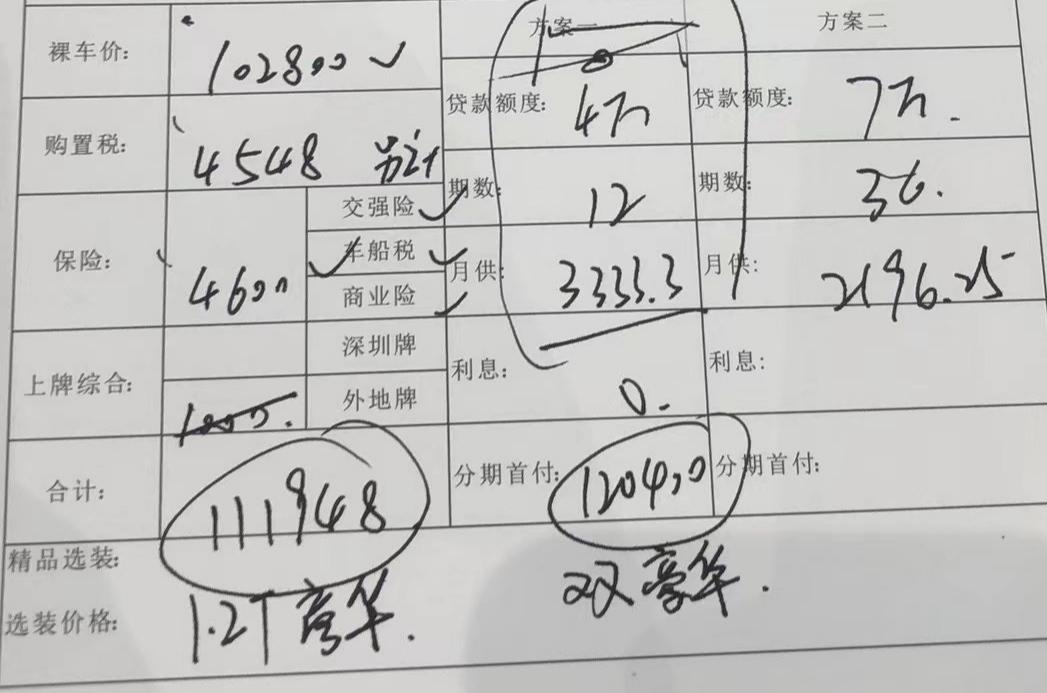 方案一 方案二
裸车价: 102800 ✓ 贷款额度: 4万 贷款额度: 7万.
购置税: 4548 另计 期数: 12 期数: 36.
保险: 4600 交强险 ✓
车船税 ✓ 月供: 3333.3 月供: 2196.25
商业险 ✓
上牌综合: 深圳牌 利息: 0. 利息:
1000. 外地牌
合计: 111948 分期首付: 120400 分期首付:
精品选装:
选装价格: 1.2T 豪华. 双豪华.